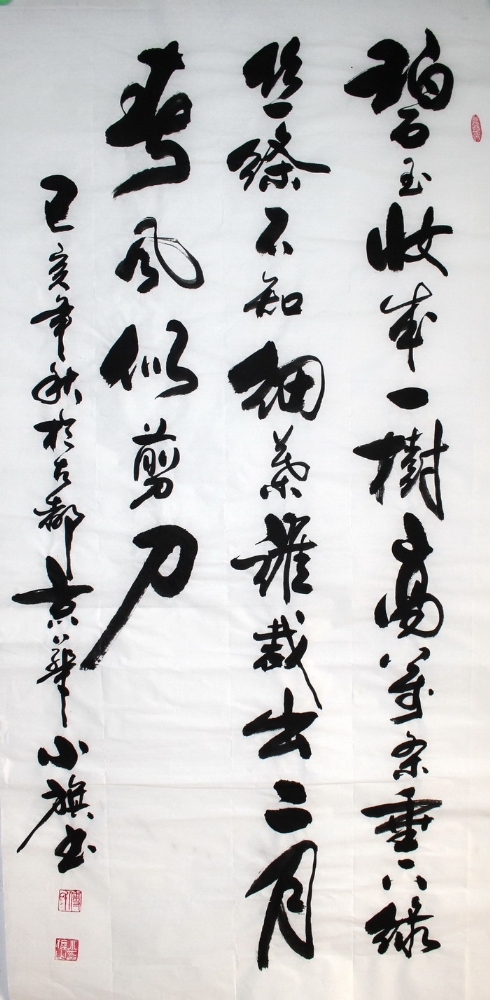 碧玉妆成一樹高萬条垂下绿
丝絛不知細葉誰裁出二月
春风似剪刀
己亥年秋於古都京華小旗书